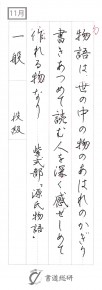 11月
物語は世の中の物のあはれのかぎり
書きあつめて読む人を深く感ぜしめて
作れる物なり
紫式部「源氏物語」
一般
段級
書道総研